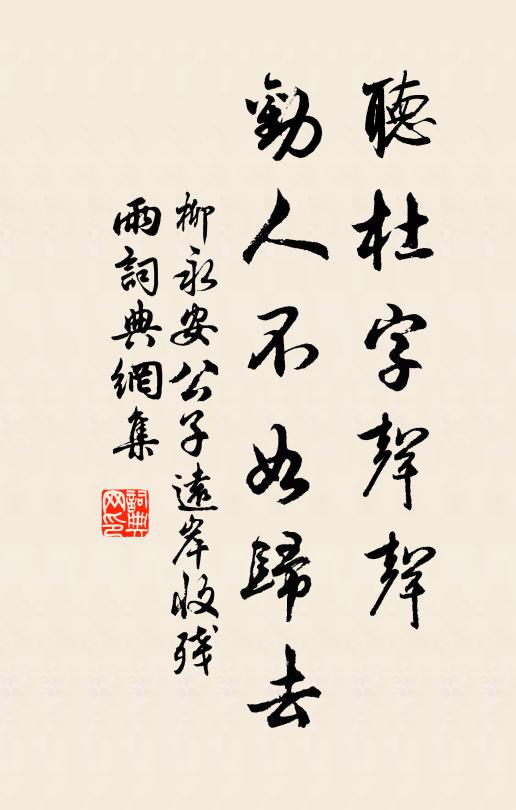 聽杜字聲聲
勸人不如歸去
柳永安公子遠岸收残
雨詞典網集
詞典
网印